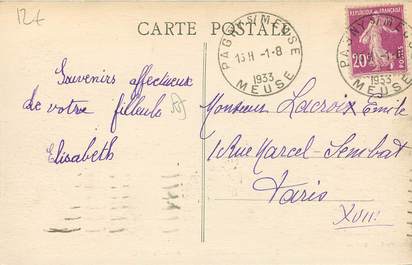 12€
CARTE POSTALE
PAGNY S/MEUSE
13H -1-8
1933
MEUSE
20
POSTES
1933
MEUSE
Souvenirs affectueux
de votre filleule
Elisabeth
Monsieur Lacroix Emile
1 Rue Marcel-Sembat
Paris
XVIII